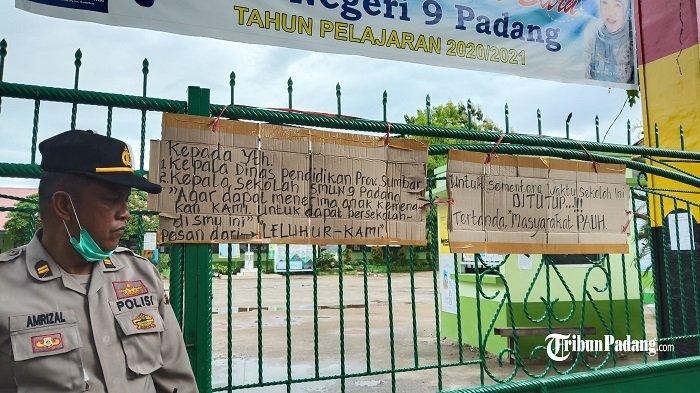 Negeri 9 Padang
TAHUN PELAJARAN 2020/2021
Kepada Yth.
1. Kepala Dinas pendidikan Prov. Sumbar
2. Kepala sekolah SMUN 9 Padang
"Agar dapat menerima anak kemena-
kan KAMI untuk dapat bersekolah
di smu ini"
pesan dari→ "LELUHUR-KAMI"
Untuk Sementara Waktu sekolah Ini
DITUTUP...!!!
Tertanda, "Masyarakat PAUH.
AMRIZAL
POLISI
TribunPadang.com